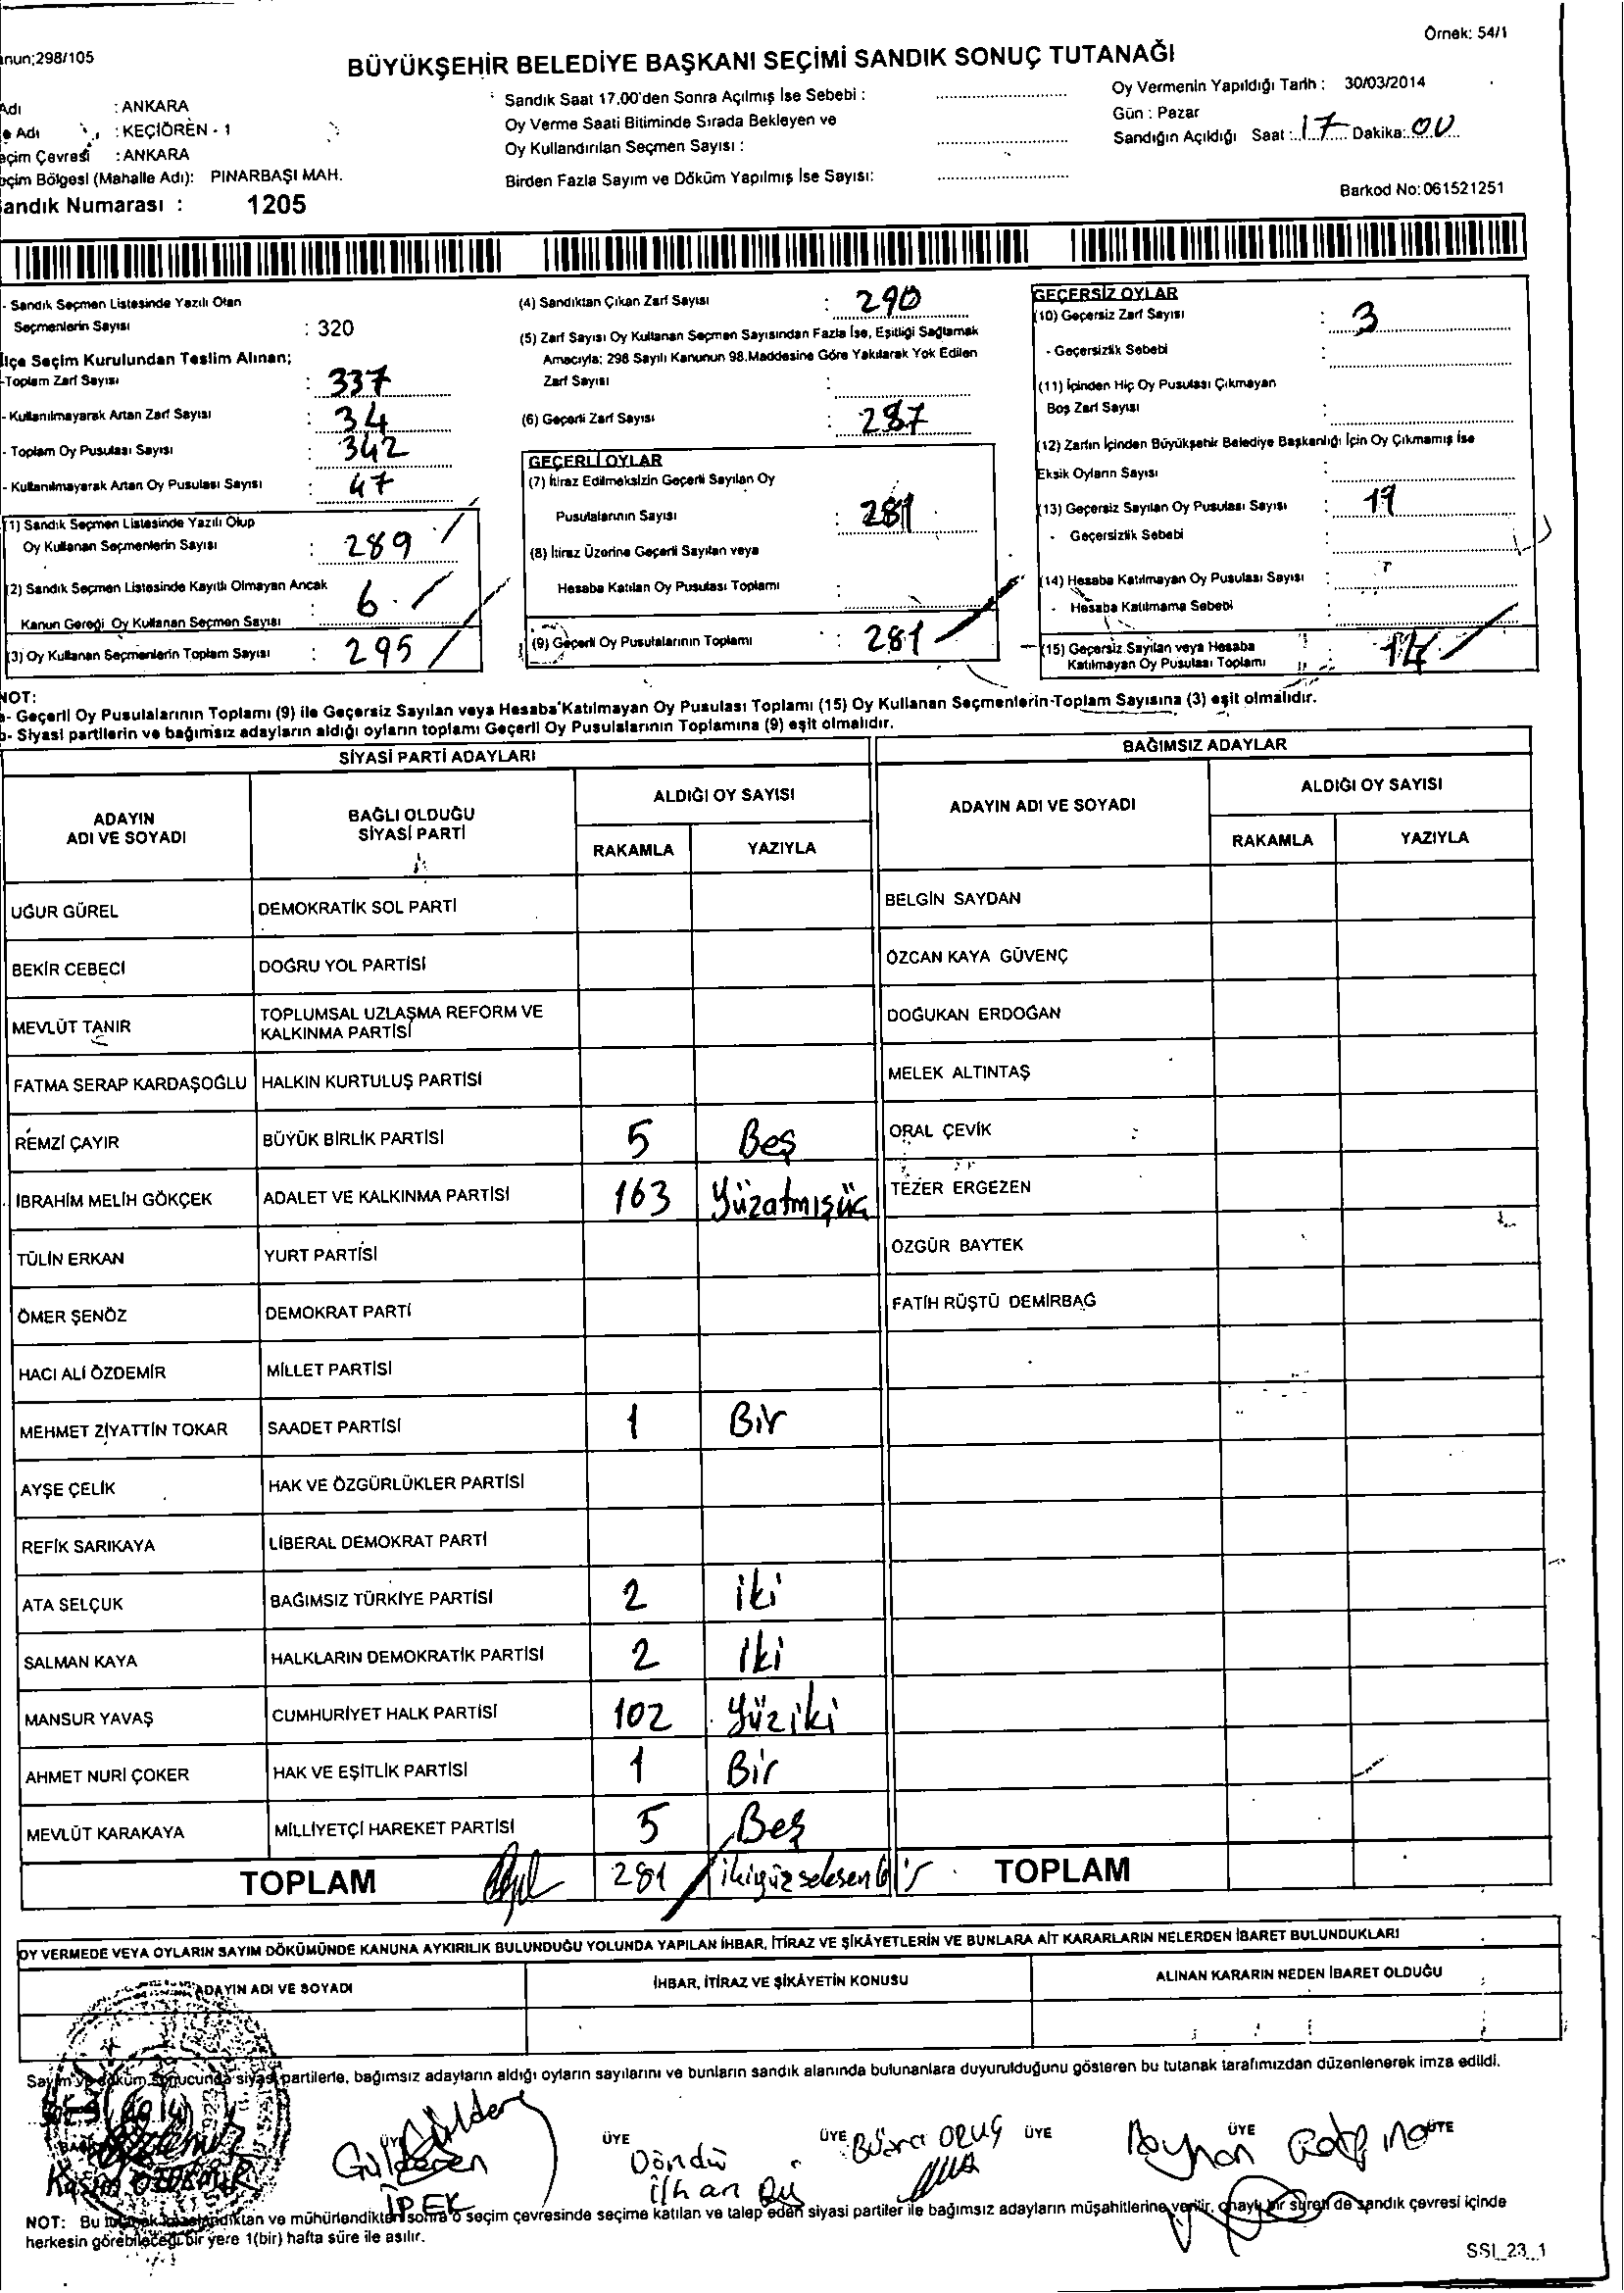 Örnek: 54/1
BÜYÜKŞEHİR BELEDİYE BAŞKANI SEÇİMİ SANDIK SONUÇ TUTANAĞI
nun;298/105
Adı : ANKARA
e Adı : KEÇİÖREN - 1
eçim Çevresi : ANKARA
eçim Bölgesi (Mahalle Adı): PINARBAŞI MAH.
andık Numarası : 1205
Sandık Saat 17.00'den Sonra Açılmış İse Sebebi :
Oy Verme Saati Bitiminde Sırada Bekleyen ve
Oy Kullandırılan Seçmen Sayısı :
Birden Fazla Sayım ve Döküm Yapılmış İse Sayısı:
Oy Vermenin Yapıldığı Tarih : 30/03/2014
Gün : Pazar
Sandığın Açıldığı Saat : 17 Dakika: 00
Barkod No: 061521251
- Sandık Seçmen Listesinde Yazılı Olan
Seçmenlerin Sayısı : 320
İlçe Seçim Kurulundan Teslim Alınan;
-Toplam Zarf Sayısı : 337
- Kullanılmayarak Artan Zarf Sayısı : 34
- Toplam Oy Pusulası Sayısı : 342
- Kullanılmayarak Artan Oy Pusulası Sayısı : 47
(1) Sandık Seçmen Listesinde Yazılı Olup
Oy Kullanan Seçmenlerin Sayısı : 289
(2) Sandık Seçmen Listesinde Kayıtlı Olmayan Ancak
Kanun Gereği Oy Kullanan Seçmen Sayısı : 6
(3) Oy Kullanan Seçmenlerin Toplam Sayısı : 295
(4) Sandıktan Çıkan Zarf Sayısı : 290
(5) Zarf Sayısı Oy Kullanan Seçmen Sayısından Fazla İse, Eşitliği Sağlamak
Amacıyla; 298 Sayılı Kanunun 98.Maddesine Göre Yakılarak Yok Edilen
Zarf Sayısı :
(6) Geçerli Zarf Sayısı : 287
GEÇERLİ OYLAR
(7) İtiraz Edilmeksizin Geçerli Sayılan Oy
Pusulalarının Sayısı : 281
(8) İtiraz Üzerine Geçerli Sayılan veya
Hesaba Katılan Oy Pusulası Toplamı :
(9) Geçerli Oy Pusulalarının Toplamı : 281
GEÇERSİZ OYLAR
(10) Geçersiz Zarf Sayısı : 3
- Geçersizlik Sebebi :
(11) İçinden Hiç Oy Pusulası Çıkmayan
Boş Zarf Sayısı :
(12) Zarfın İçinden Büyükşehir Belediye Başkanlığı İçin Oy Çıkmamış İse
Eksik Oyların Sayısı :
(13) Geçersiz Sayılan Oy Pusulası Sayısı :
- Geçersizlik Sebebi :
(14) Hesaba Katılmayan Oy Pusulası Sayısı :
- Hesaba Katılmama Sebebi :
(15) Geçersiz Sayılan veya Hesaba
Katılmayan Oy Pusulası Toplamı : 14
NOT:
a- Geçerli Oy Pusulalarının Toplamı (9) ile Geçersiz Sayılan veya Hesaba Katılmayan Oy Pusulası Toplamı (15) Oy Kullanan Seçmenlerin Toplam Sayısına (3) eşit olmalıdır.
b- Siyasi partilerin ve bağımsız adayların aldığı oyların toplamı Geçerli Oy Pusulalarının Toplamına (9) eşit olmalıdır.
SİYASİ PARTİ ADAYLARI
ADAYIN ADI VE SOYADI BAĞLI OLDUĞU SİYASİ PARTİ ALDIĞI OY SAYISI
RAKAMLA YAZIYLA
UĞUR GÜREL DEMOKRATİK SOL PARTİ
BEKİR CEBECİ DOĞRU YOL PARTİSİ
MEVLÜT TANIR TOPLUMSAL UZLAŞMA REFORM VE KALKINMA PARTİSİ
FATMA SERAP KARDAŞOĞLU HALKIN KURTULUŞ PARTİSİ
REMZİ ÇAYIR BÜYÜK BİRLİK PARTİSİ 5 Beş
İBRAHİM MELİH GÖKÇEK ADALET VE KALKINMA PARTİSİ 163 Yüzatmışüç
TÜLİN ERKAN YURT PARTİSİ
ÖMER ŞENÖZ DEMOKRAT PARTİ
HACI ALİ ÖZDEMİR MİLLET PARTİSİ
MEHMET ZİYATTİN TOKAR SAADET PARTİSİ 1 Bir
AYŞE ÇELİK HAK VE ÖZGÜRLÜKLER PARTİSİ
REFİK SARIKAYA LİBERAL DEMOKRAT PARTİ
ATA SELÇUK BAĞIMSIZ TÜRKİYE PARTİSİ 2 iki
SALMAN KAYA HALKLARIN DEMOKRATİK PARTİSİ 2 iki
MANSUR YAVAŞ CUMHURİYET HALK PARTİSİ 102 Yüziki
AHMET NURİ ÇOKER HAK VE EŞİTLİK PARTİSİ 1 Bir
MEVLÜT KARAKAYA MİLLİYETÇİ HAREKET PARTİSİ 5 Beş
TOPLAM 281
BAĞIMSIZ ADAYLAR
ADAYIN ADI VE SOYADI ALDIĞI OY SAYISI
RAKAMLA YAZIYLA
BELGİN SAYDAN
ÖZCAN KAYA GÜVENÇ
DOĞUKAN ERDOĞAN
MELEK ALTINTAŞ
ORAL ÇEVİK
TEZER ERGEZEN
ÖZGÜR BAYTEK
FATİH RÜŞTÜ DEMİRBAĞ
TOPLAM
OY VERMEDE VEYA OYLARIN SAYIM DÖKÜMÜNDE KANUNA AYKIRILIK BULUNDUĞU YOLUNDA YAPILAN İHBAR, İTİRAZ VE ŞİKÂYETLERİN VE BUNLARA AİT KARARLARIN NELERDEN İBARET BULUNDUKLARI
ADAYIN ADI VE SOYADI İHBAR, İTİRAZ VE ŞİKÂYETİN KONUSU ALINAN KARARIN NEDEN İBARET OLDUĞU
Sayım ve döküm sonucunda siyasi partilerle, bağımsız adayların aldığı oyların sayılarını ve bunların sandık alanında bulunanlara duyurulduğunu gösteren bu tutanak tarafımızdan düzenlenerek imza edildi.
ÜYE ÜYE ÜYE ÜYE ÜYE ÜYE
Gülderen İPEK
Döndü ilhan
Büşra ORUÇ
NOT: Bu tutanak imzalandıktan ve mühürlendikten sonra o seçim çevresinde seçime katılan ve talep eden siyasi partiler ile bağımsız adayların müşahitlerine verilir, onaylı bir sureti de sandık çevresi içinde
herkesin görebileceği bir yere 1(bir) hafta süre ile asılır.
SSI_23_1